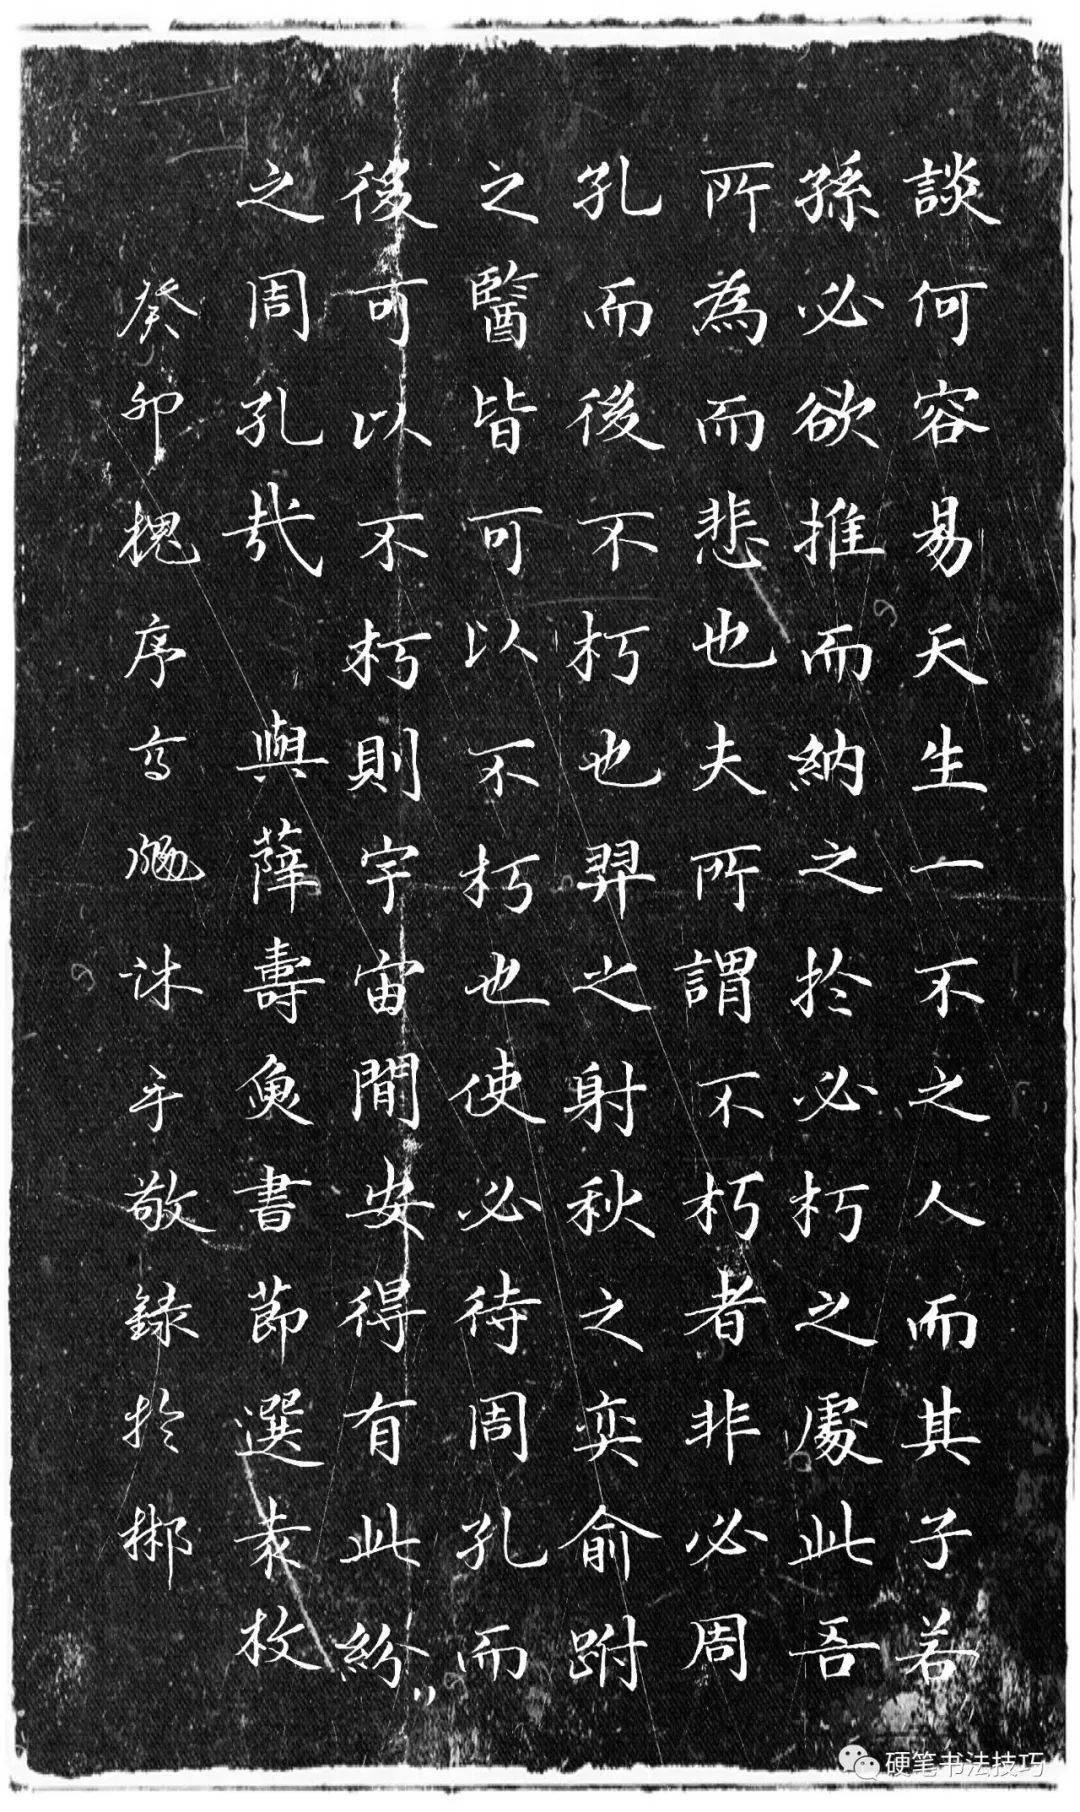 談何容易天生一不之人而其子若
孫必欲推而納之於必朽之處此吾
所為而悲也夫所謂不朽者非必周
孔而後不朽也羿之射秋之奕俞跗
之醫皆可以不朽也使必待周孔而
後可以不朽則宇宙間安得有此紛〃
之周孔哉 與薛壽魚書節選袁枚
癸卯槐序 敬錄於
硬笔书法技巧